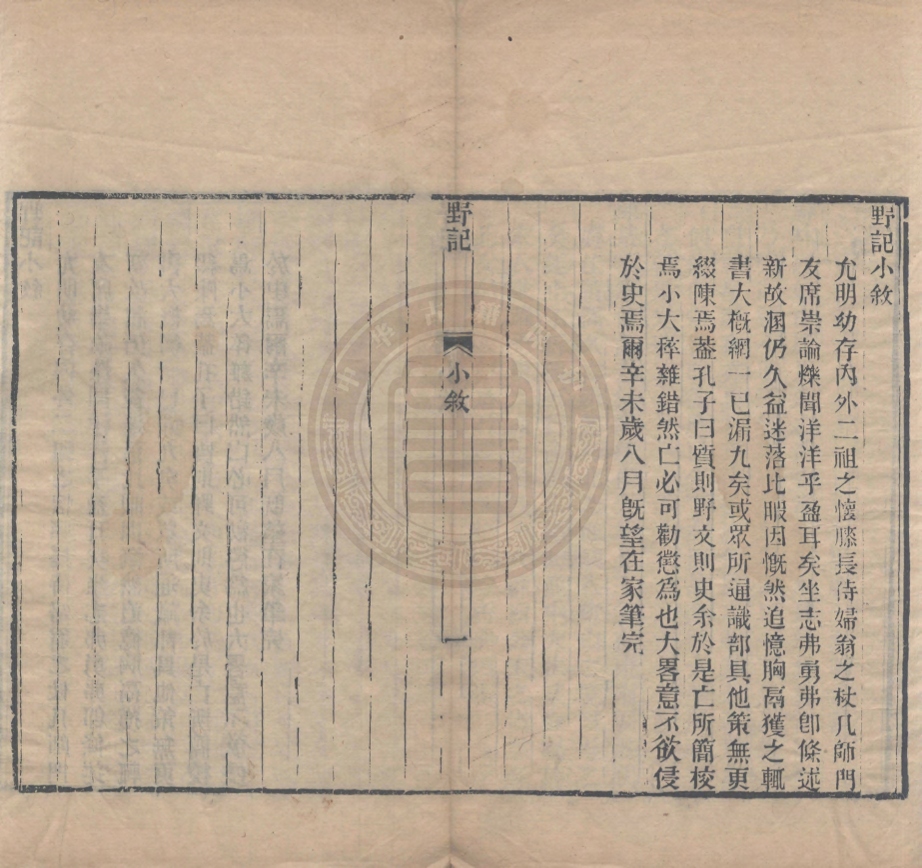 野記小敘
允明幼存內外二祖之懷膝長侍婦翁之杖几師門
友席崇論爍聞洋洋乎盈耳矣坐志弗勇弗卽條述
新故溷仍久益迷落比暇因慨然追憶胸鬲獲之輒
書大槪網一已漏九矣或眾所通識部具他策無更
綴陳焉葢孔子曰質則野文則史余於是亡所簡校
焉小大稡雜錯然亡必可勸懲為也大畧意不欲侵
於史焉爾辛未歲八月旣望在家筆完
野記
小敘
一